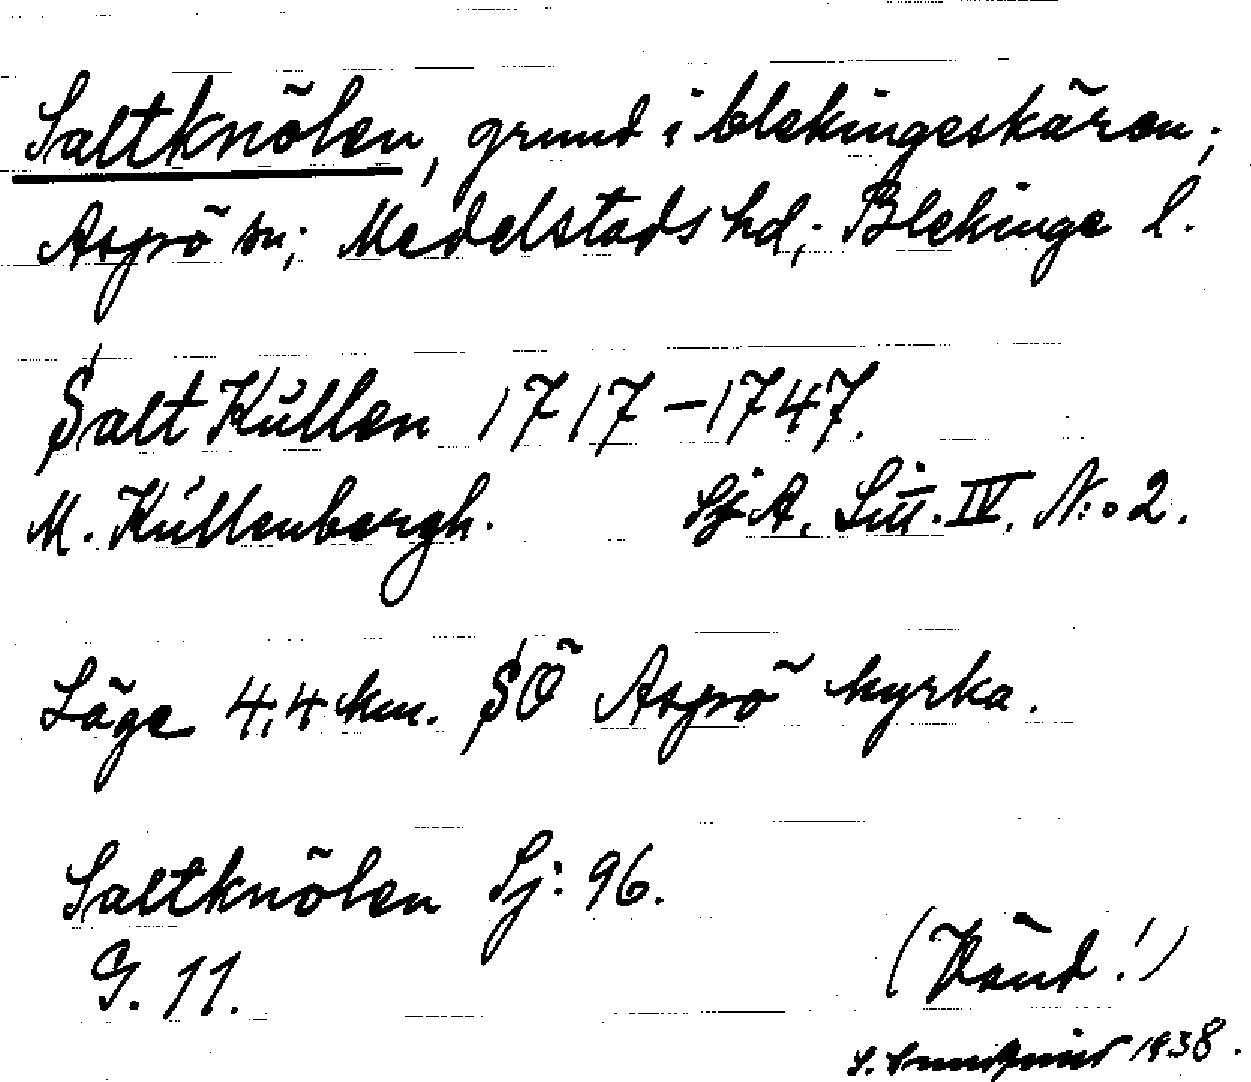 Saltknölen, grund i blekingeskären;
Aspö sn; Medelstads hd; Blekinge l.
Salt Kullen 1717-1747.
M. Kullenbergh. Sj A. Litt. IV. N:o 2.
Läge 4,4 km. SÖ Aspö kyrka.
Saltknölen Sj: 96.
G. 11.
(Vänd!)
S. 1938.